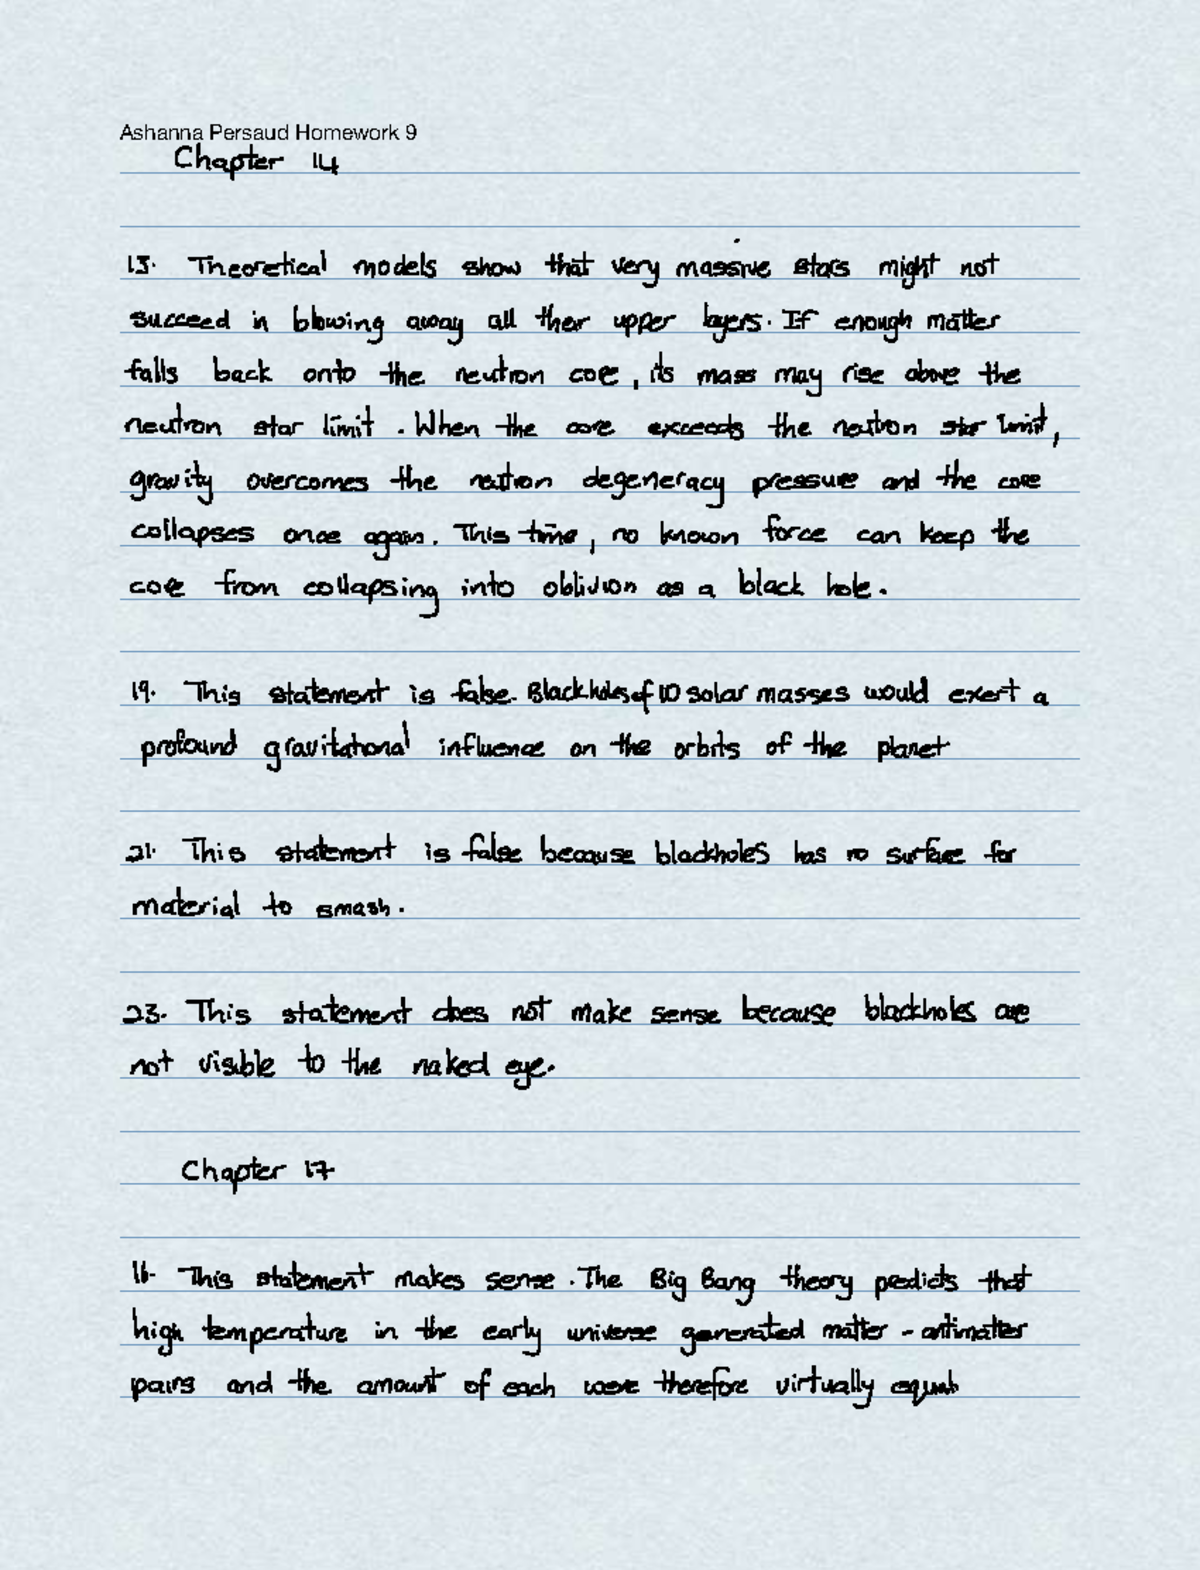 Ashanna Persaud Homework 9
Chapter 14
13. Theoretical models show that very massive stars might not
succeed in blowing away all their upper layers. If enough matter
falls back onto the neutron core, its mass may rise above the
neutron star limit. When the core exceeds the neutron star limit,
gravity overcomes the neutron degeneracy pressure and the core
collapses once again. This time, no known force can keep the
core from collapsing into oblivion as a black hole.
19. This statement is false. Blackholes of 10 solar masses would exert a
profound gravitational influence on the orbits of the planet
21. This statement is false because blackholes has no surface for
material to smash.
23. This statement does not make sense because blackholes are
not visible to the naked eye.
Chapter 17
16. This statement makes sense. The Big Bang theory predicts that
high temperature in the early universe generated matter - antimatter
pairs and the amount of each were therefore virtually equal